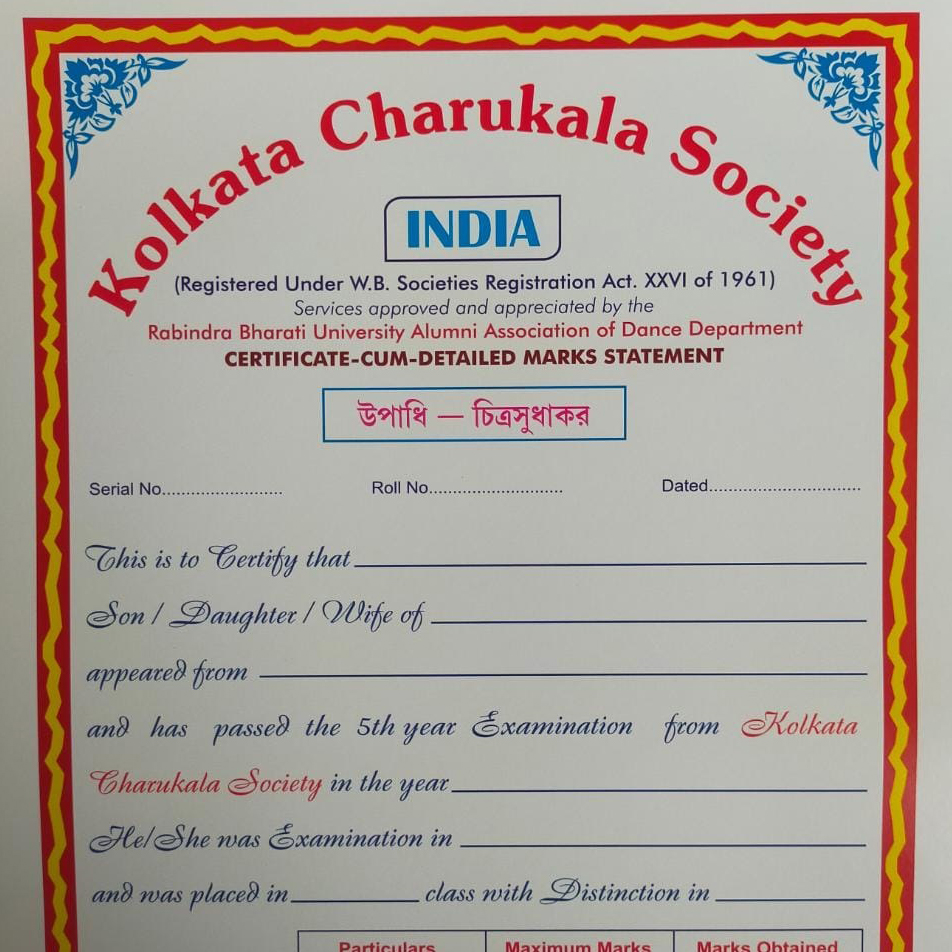 Kolkata Charukala Society
INDIA
(Registered Under W.B. Societies Registration Act. XXVI of 1961)
Services approved and appreciated by the
Rabindra Bharati University Alumni Association of Dance Department
CERTIFICATE-CUM-DETAILED MARKS STATEMENT
উপাধি — চিত্রসুধাকর
Serial No......................... Roll No............................ Dated...............................
This is to Certify that
Son / Daughter / Wife of
appeared from
and has passed the 5th year Examination from Kolkata
Charukala Society in the year
He/She was Examination in
and was placed in class with Distinction in
Particulars Maximum Marks Marks Obtained